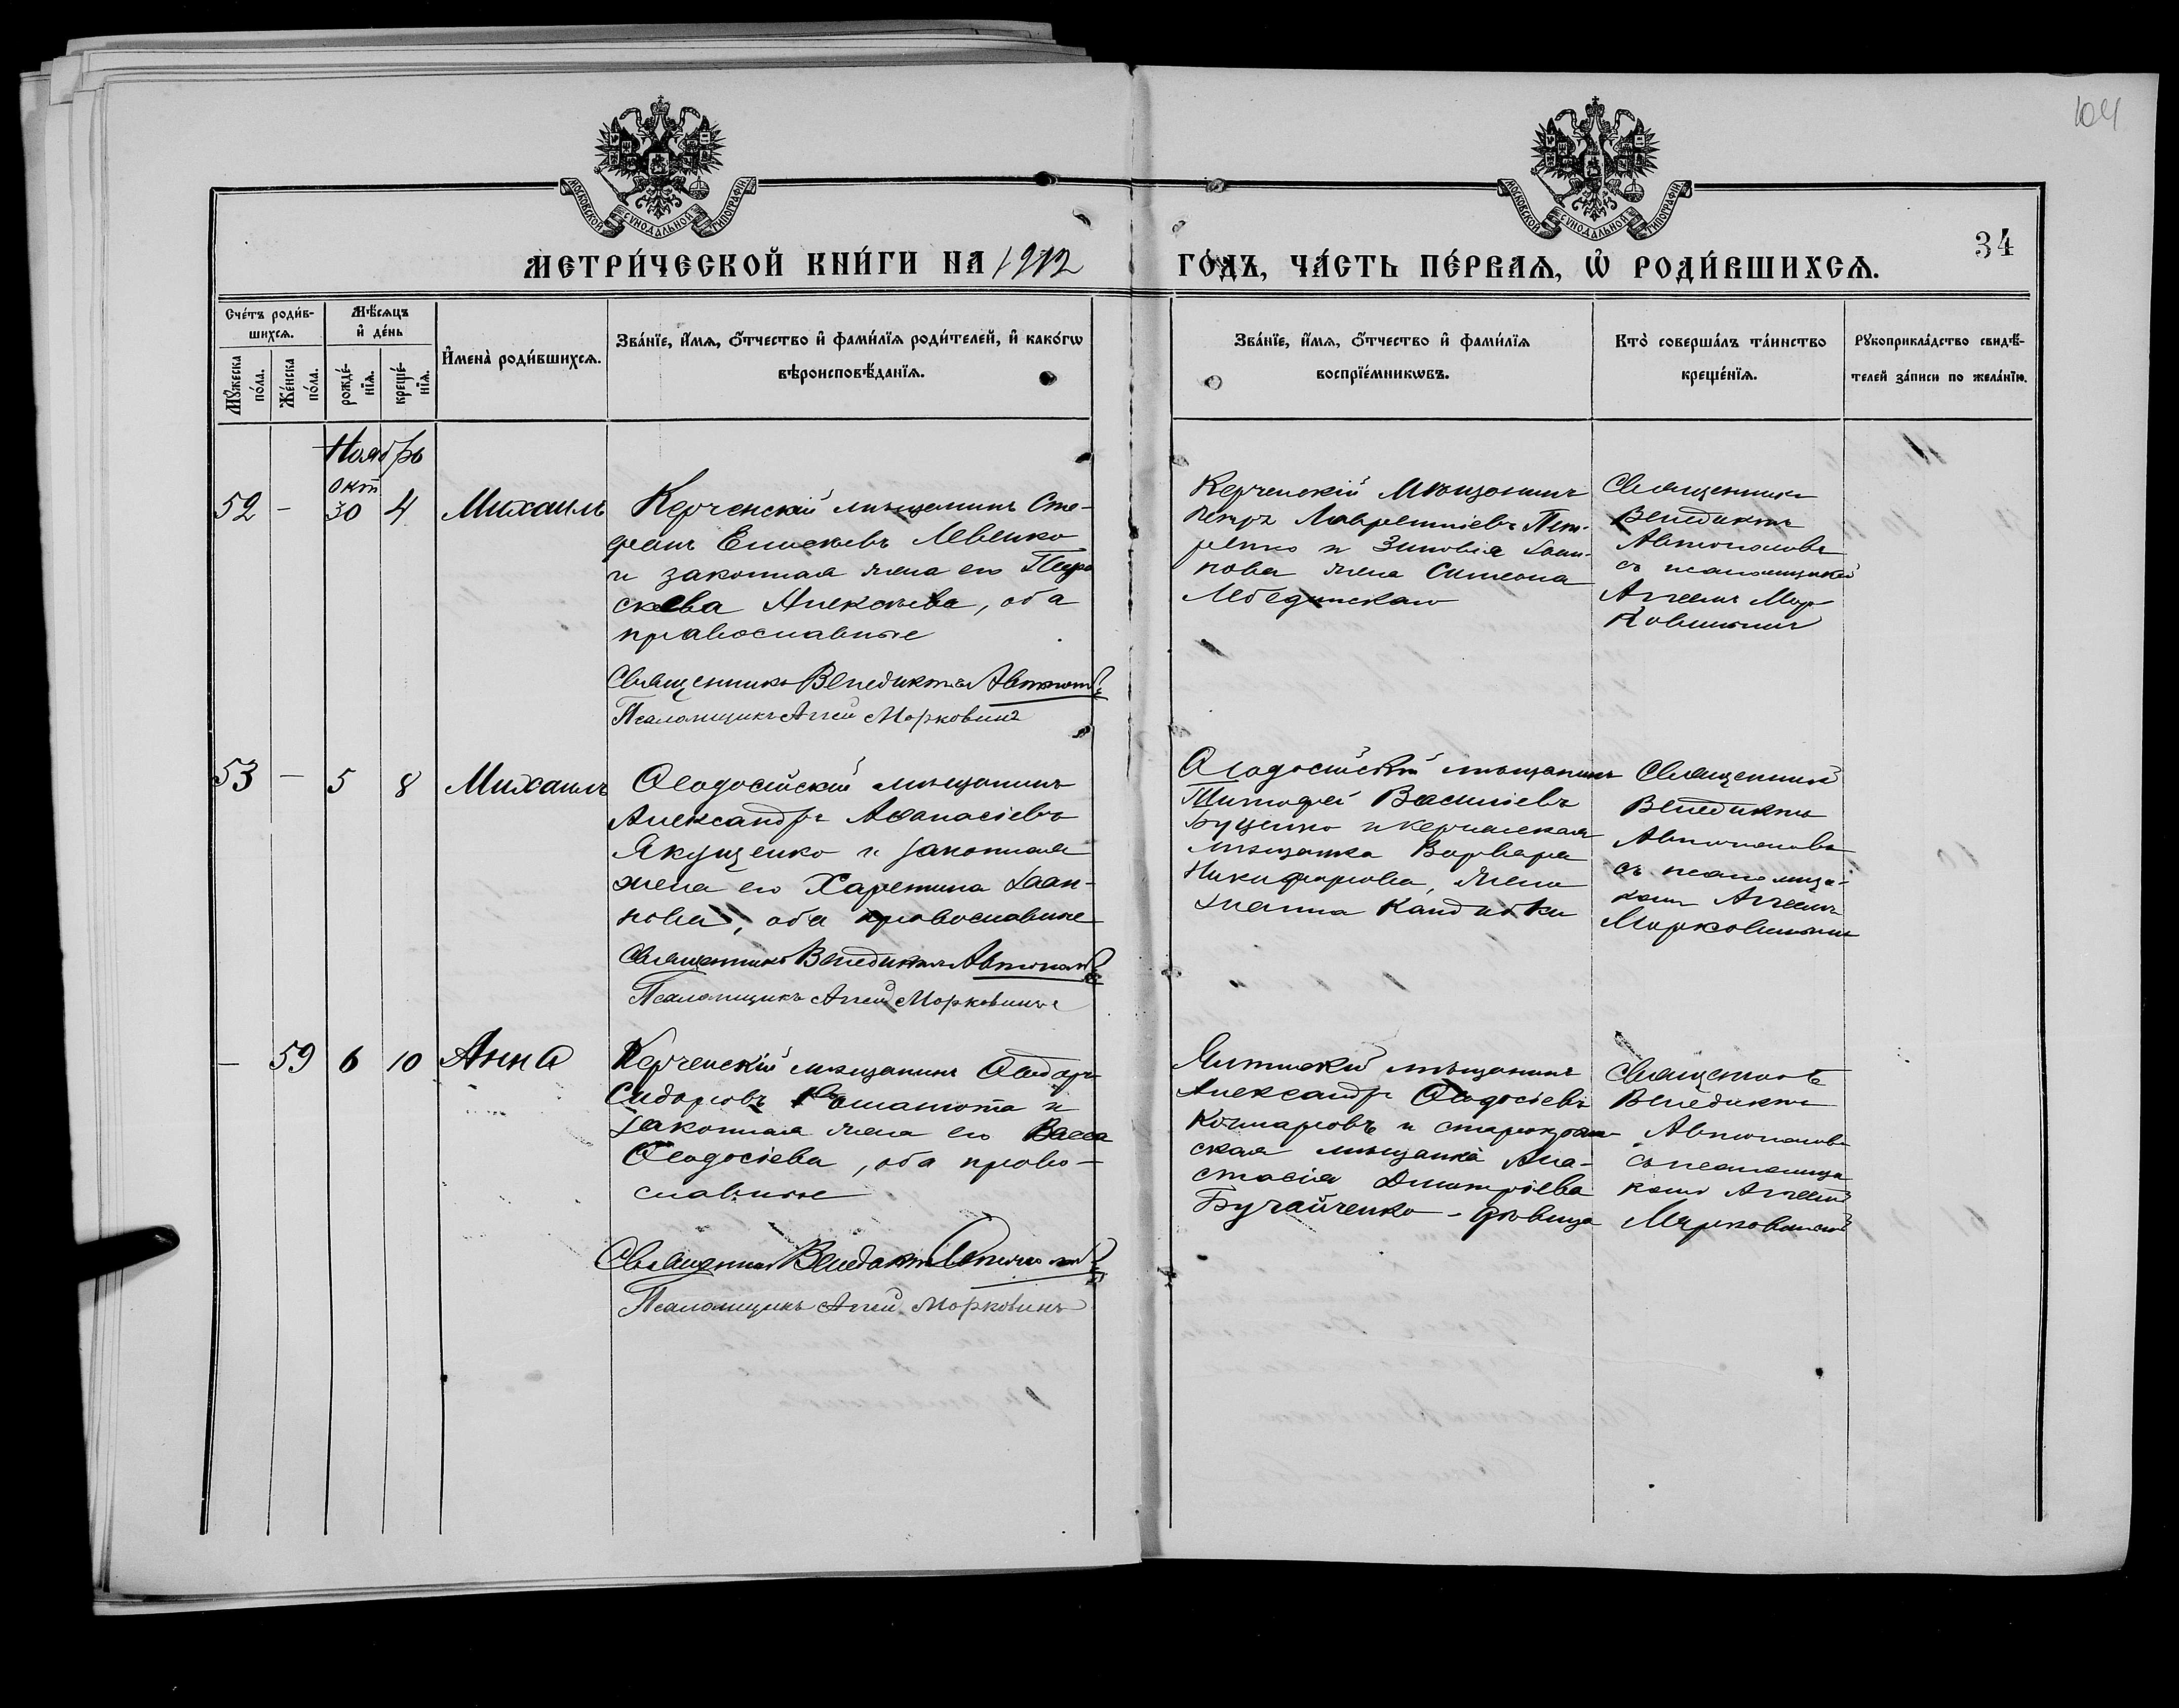 104
МОСКОВСКОЙ СѴНОДАЛЬНОЙ ТИПОГРАФІИ
МОСКОВСКОЙ СѴНОДАЛЬНОЙ ТИПОГРАФІИ
34
МЕТРИ́ЧЕСКОЙ КНИ́ГИ НА 1912
ГО́ДЪ, ЧА́СТЬ ПЕ́РВАѦ, Ѡ҆ РОДИ́ВШИХСѦ.
Сче́тъ роди́в-
шихсѧ.
Мꙋ́жеска по́ла.
Же́нска по́ла.
Мѣ́сѧцъ
и҆ де́нь
рожде́-
нїѧ.
креще́-
нїѧ.
И҆мена̀ роди́вшихсѧ.
Зва́нїе, и҆́мѧ, ѻ҆́тчество и҆ фами́лїѧ роди́телей, и҆ како́гѡ
вѣроисповѣ́данїѧ.
Зва́нїе, и҆́мѧ, ѻ҆́тчество и҆ фами́лїѧ
воспрїе́мникѡвъ.
Кто̀ соверша́лъ та́инство
креще́нїѧ.
Рꙋкоприкла́дство свидѣ́-
телей за́писи по жела́нїю.
Ноябрь
52
-
Окт
30
4
Михаилъ
Керченскій мѣщанинъ Сте-
фанъ Левенко
и законная жена его Пара
скева Алексѣева, оба
православные
Священникъ Венедиктъ Автономовъ
Псаломщикъ Аггей Морковинъ
Керченскій мѣщанинъ
Петръ Лаврентіевъ Пет-
ренко и Зиновія Іоан-
нова жена Симеона
Лебединскаго
Священникъ
Венедиктъ
Автономовъ
съ псаломщикомъ
Аггеемъ Мор
ковинымъ
53
—
5
8
Михаилъ
Ѳеодосійскій мѣщанинъ
Александръ Аѳанасіевъ
Якущенко и законная
жена его Харетина Іоан-
нова, оба православные
Священникъ Венедиктъ Автономовъ
Псаломщикъ Аггей Морковинъ
Ѳеодосійскій мѣщанинъ
Тимоѳей Васильевъ
Буценко и керченская
мѣщанка Варвара
Никифорова, жена
Іоанна
Священникъ
Венедиктъ
Автономовъ
съ псаломщи-
комъ Аггеемъ
Морковинымъ
—
59
6
10
Анна
Керченскій мѣщанинъ Ѳеодоръ
Сидоровъ и
законная жена его Васса
Ѳеодосіева, оба право-
славные
Священникъ Венедиктъ Автономовъ
Псаломщикъ Аггей Морковинъ
Ялтинскій мѣщанинъ
Александръ Ѳеодосіевъ
Комаровъ и старокрым
ская мѣщанка Ана-
стасія Димитріева
Бугайченко - дѣвица
Священникъ
Венедиктъ
Автономовъ
съ псаломщи
комъ Аггеемъ
Морковинымъ